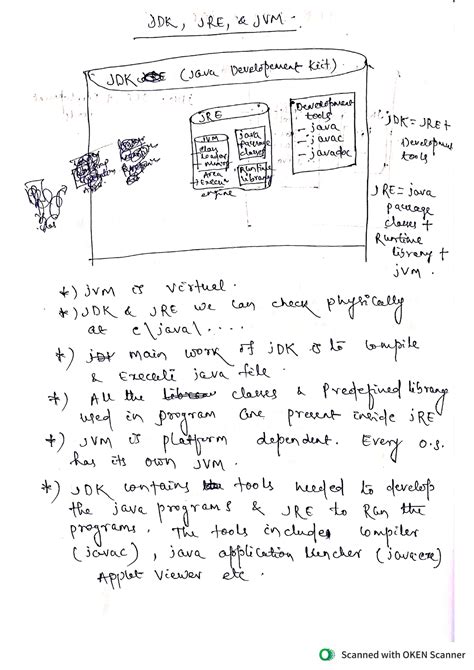 JDK, JRE, & JVM.
JDK (Java Developement Kit)
JRE
JVM
Class
Loader
Memory
Area
+ Execu
engine
java
Package
classes
Runtime
Library
Developement
tools
- java
- javac
- javadoc
JDK = JRE +
Developmen
tools
JRE = java
package
classes +
Runtime
library +
JVM.
*) JVM is virtual.
*) JDK & JRE we can check physically
at c\java\....
*) main work of JDK is to compile
& Execute java file.
*) All the classes & Predefined library
used in program are present inside JRE
*) JVM is platform dependent. Every O.S.
has its own JVM.
*) JDK contains tools needed to develop
the java programs & JRE to Run the
programs. The tools includes compiler
(javac), java application launcher (java.exe)
Applet Viewer etc.
Scanned with OKEN Scanner